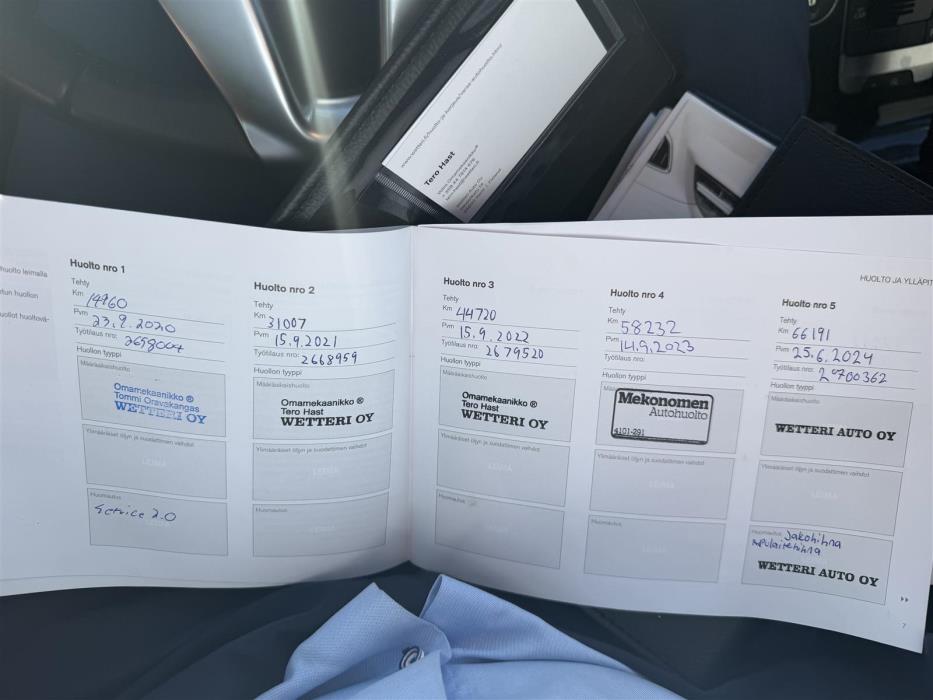 www.wetteri.fi/huolto-ja-korjaus/varaa-autohuolto.html
Tero Hast
HUOLTO JA YLLÄPIT
huolto leimalla
Huolto nro 1
Tehty
Km 14960
Pvm 23.9.2020
Työtilaus nro: 2658004
Huollon tyyppi
Määräaikaishuolto
Omamekaanikko ®
Tommi Oravakangas
WETTERI OY
Ylimääräiset öljyn ja suodattimen vaihdot
LEIMA
Huomautus
Service 2.0
Huolto nro 2
Tehty
Km 31007
Pvm 15.9.2021
Työtilaus nro: 2668959
Huollon tyyppi
Määräaikaishuolto
Omamekaanikko ®
Tero Hast
WETTERI OY
Ylimääräiset öljyn ja suodattimen vaihdot
LEIMA
Huomautus
Huolto nro 3
Tehty
Km 44720
Pvm 15.9.2022
Työtilaus nro: 2679520
Huollon tyyppi
Määräaikaishuolto
Omamekaanikko ®
Tero Hast
WETTERI OY
Ylimääräiset öljyn ja suodattimen vaihdot
LEIMA
Huomautus
Huolto nro 4
Tehty
Km 58232
Pvm 14.9.2023
Työtilaus nro:
Huollon tyyppi
Mekonomen
Autohuolto
4101-291
Ylimääräiset öljyn ja suodattimen vaihdot
LEIMA
Huomautus
Huolto nro 5
Tehty
Km 66191
Pvm 25.6.2024
Työtilaus nro: 2700362
Huollon tyyppi
Määräaikaishuolto
WETTERI AUTO OY
Ylimääräiset öljyn ja suodattimen vaihdot
LEIMA
Huomautus Jakohihna
apulaitehihna
WETTERI AUTO OY
7